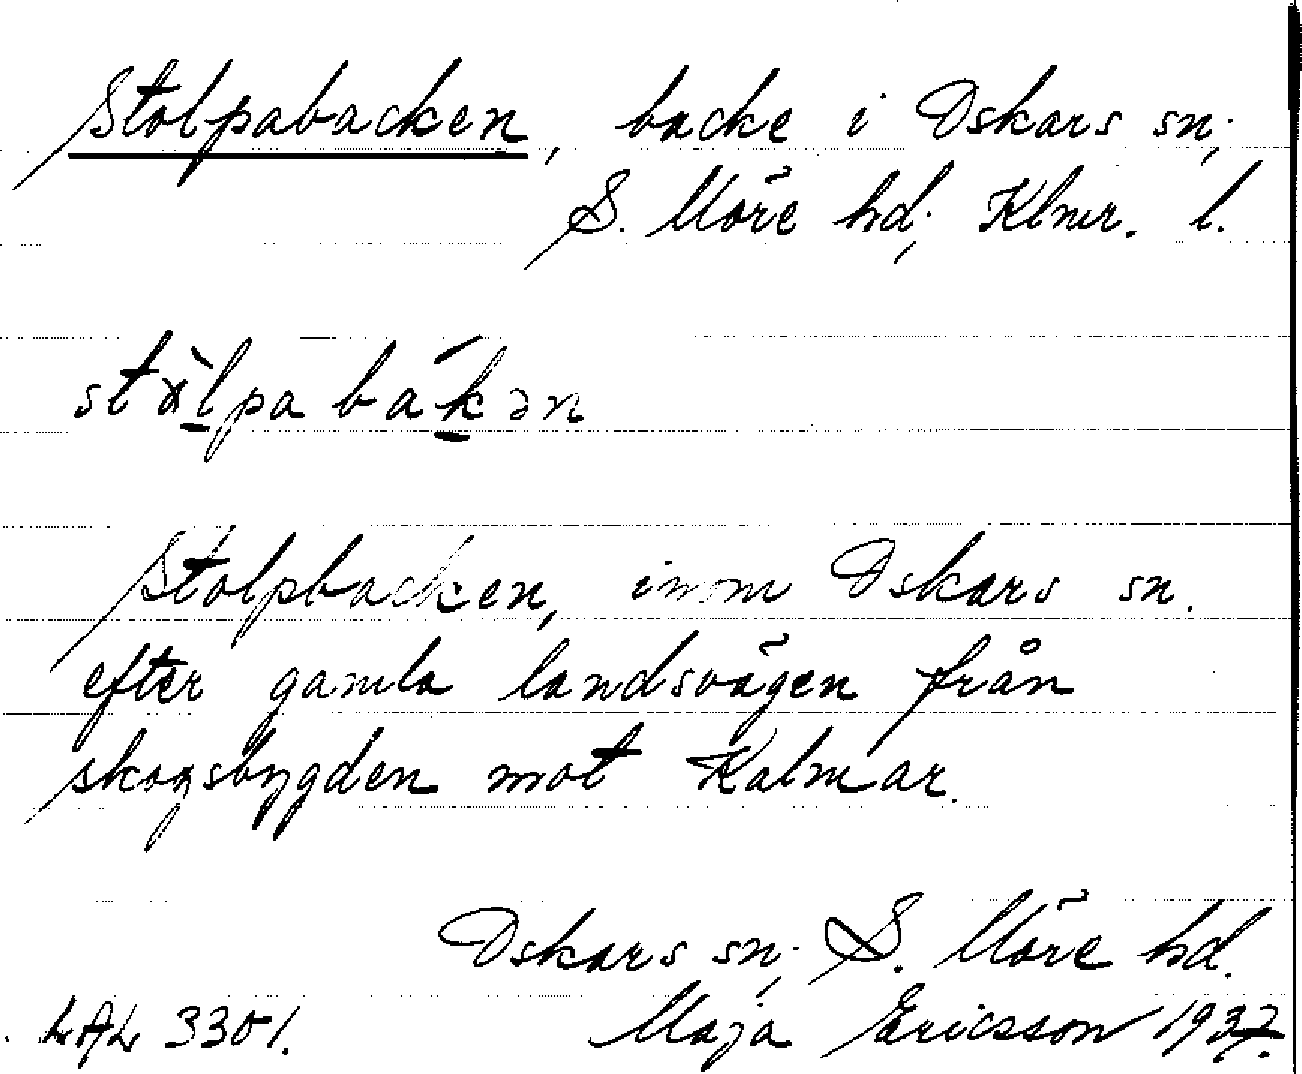 Stolpabacken, backe i Oskars sn.,
S. Möre hd., Klmr. l.
stålpa bakən
Stolpbacken, inom Oskars sn.
efter gamla landsvägen från
skogsbygden mot Kalmar.
Oskars sn., S. Möre hd.
LAL 3301. Maja Ericsson 1937.